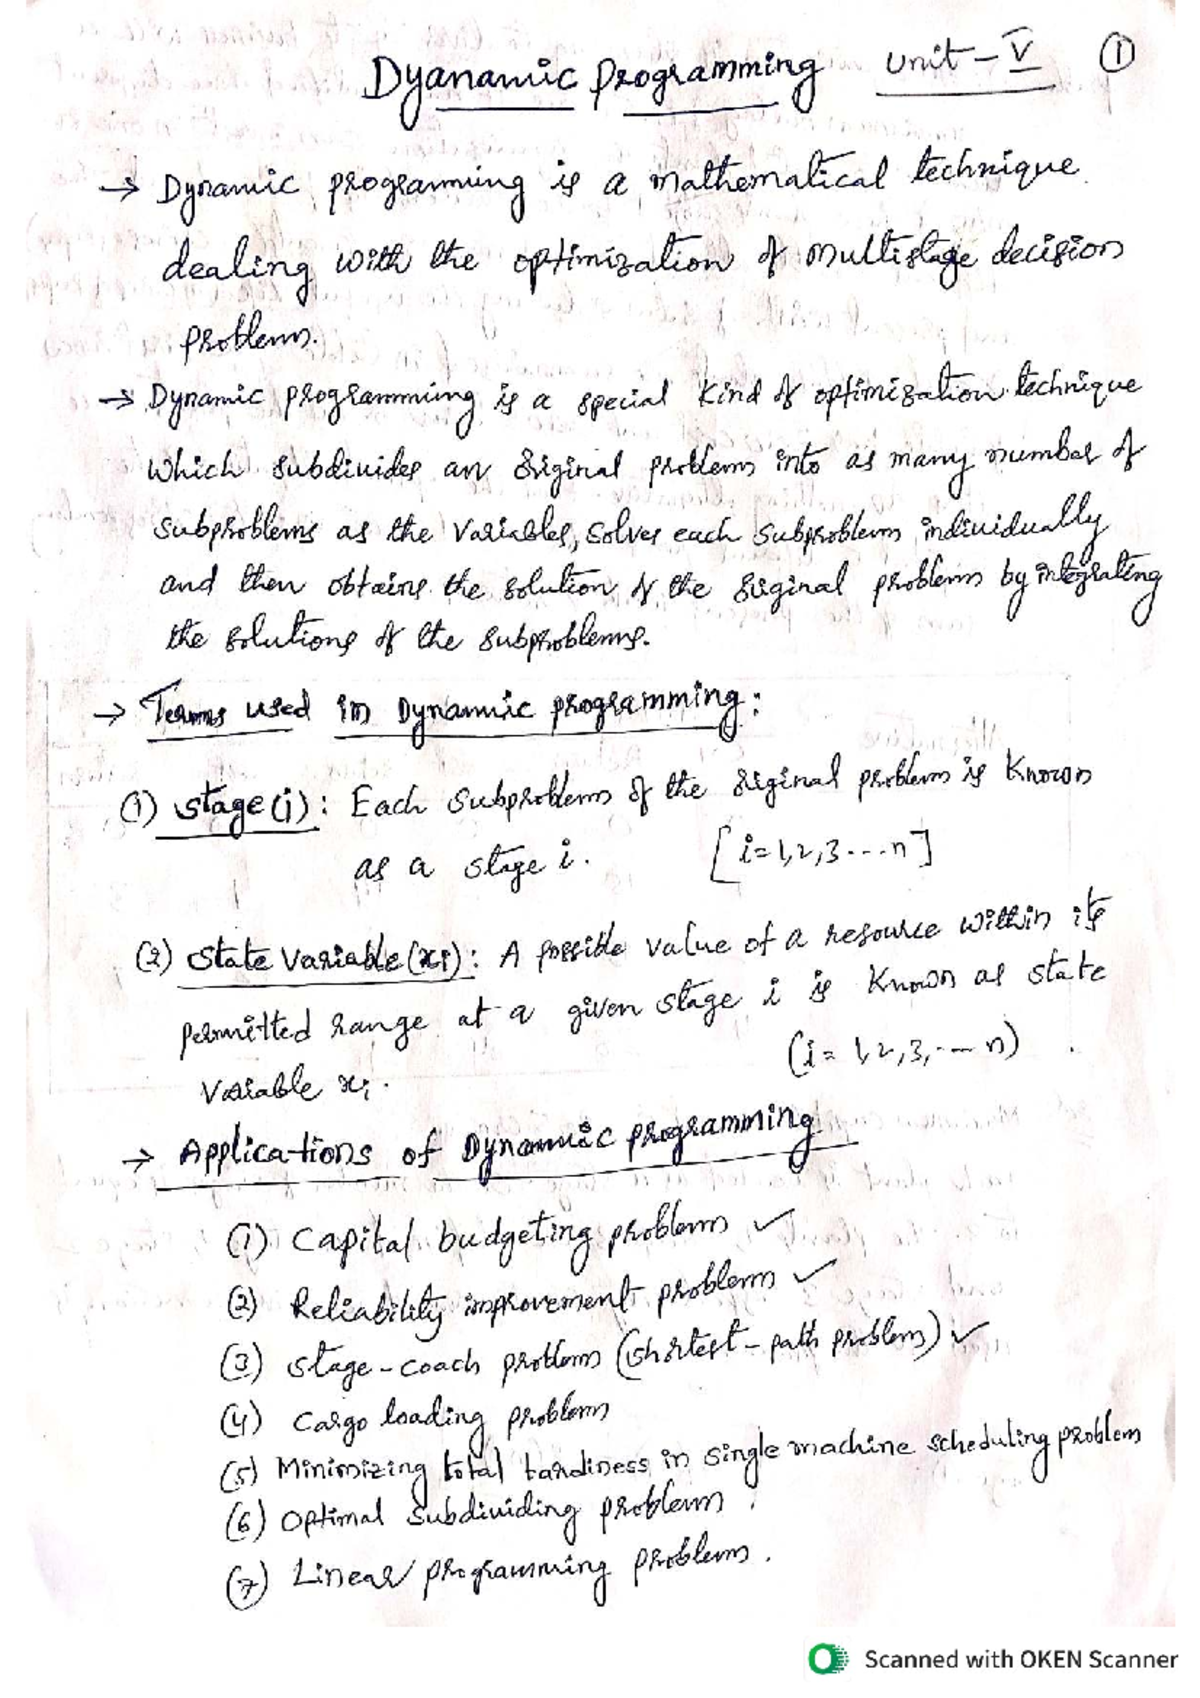 Dyanamic Programming Unit - V 1
→ Dynamic programming is a mathematical technique
dealing with the optimization of multistage decision
problem.
→ Dynamic programming is a special kind of optimization technique
which subdivides an original problem into as many number of
subproblems as the variables, solves each subproblem individually
and then obtains the solution of the original problem by integrating
the solutions of the subproblems.
→ Terms used in Dynamic programming:
(1) Stage (i): Each subproblem of the original problem is known
as a stage i. [i=1,2,3...n]
(2) State variable (xi): A possible value of a resource within its
permitted range at a given stage i is known as state
variable xi. (i=1,2,3,...n)
→ Applications of Dynamic programming
(1) Capital budgeting problem ✓
(2) Reliability improvement problem ✓
(3) Stage-coach problem (shortest-path problem) ✓
(4) Cargo loading problem
(5) Minimizing total tardiness in single machine scheduling problem
(6) Optimal subdividing problem
(7) Linear programming problem.
Scanned with OKEN Scanner